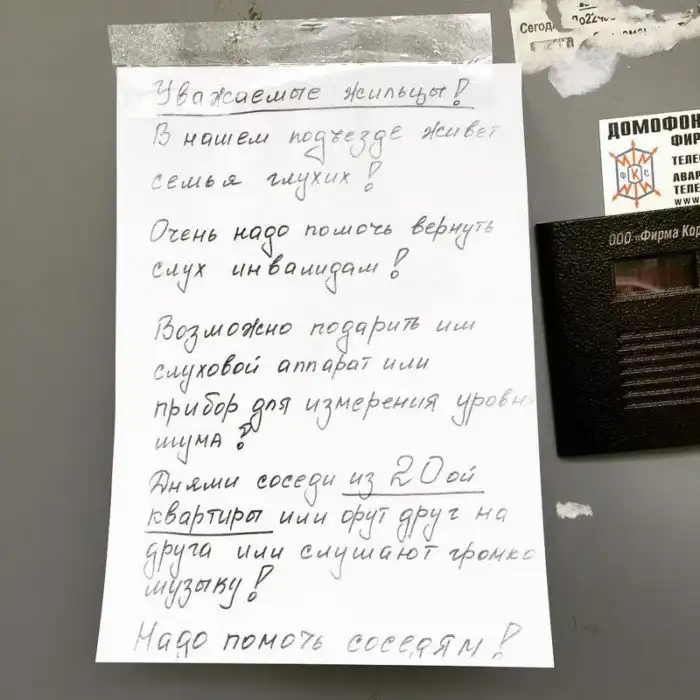 Уважаемые жильцы!
В нашем подъезде живет
семья глухих!
Очень надо помочь вернуть
слух инвалидам!
Возможно подарить им
слуховой аппарат или
прибор для измерения уровня
шума?
Днями соседи из 20ой
квартиры или орут друг на
друга или слушают громко
музыку!
Надо помочь соседям!
ДОМОФОН
ФИР
ФКС
ТЕЛЕ
АВАР
ТЕЛЕ
WWW
ООО «Фирма Кор